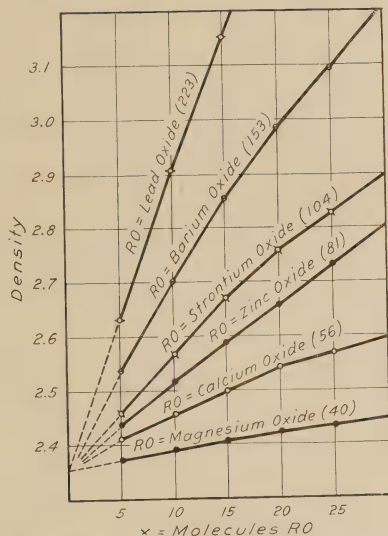 3.1
3.0
2.9
2.8
2.7
2.6
2.5
2.4
Density
RO=Lead Oxide (223)
RO=Barium Oxide (153)
RO=Strontium Oxide (104)
RO=Zinc Oxide (81)
RO=Calcium Oxide (56)
RO=Magnesium Oxide (40)
5 10 15 20 25
x = Molecules RO